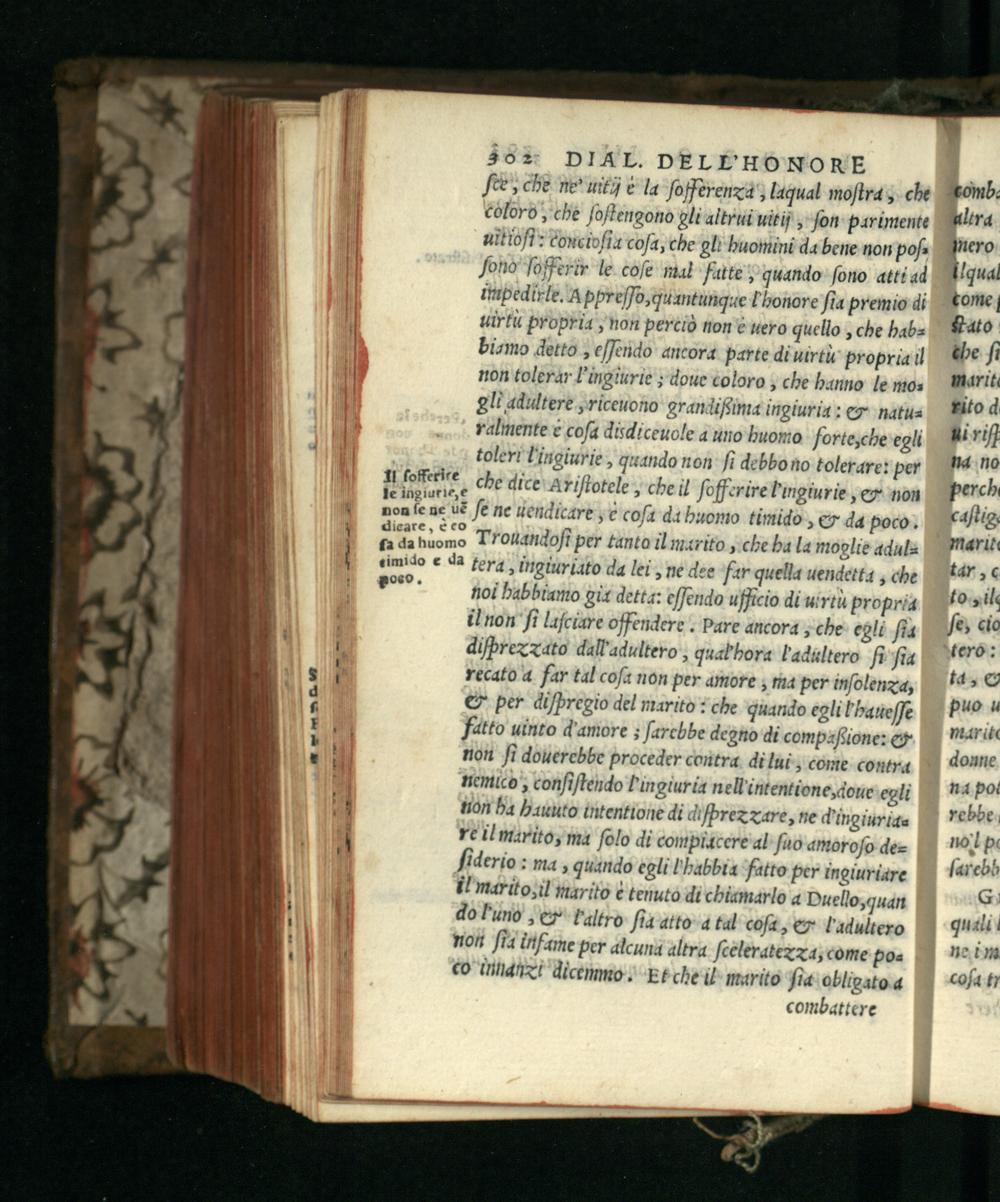 302 DIAL. DELL'HONORE
sce, che ne' uitij è la sofferenza, laqual mostra, che
coloro, che sostengono gli altrui uitij, son parimente
uitiosi: conciosia cosa, che gli huomini da bene non pos-
sono sofferir le cose mal fatte, quando sono atti ad
impedirle. Appresso, quantunque l'honore sia premio di
uirtù propria, non perciò non è uero quello, che hab-
biamo detto, essendo ancora parte di uirtù propria il
non tolerar l'ingiurie; doue coloro, che hanno le mo-
gli adultere, riceuono grandißima ingiuria: & natu-
ralmente è cosa disdiceuole a uno huomo forte, che egli
toleri l'ingiurie, quando non si debbono tolerare: per
che dice Aristotele, che il sofferire l'ingiurie, & non
se ne uendicare, è cosa da huomo timido, & da poco.
Trouandosi per tanto il marito, che ha la moglie adul-
tera, ingiuriato da lei, ne dee far quella uendetta, che
noi habbiamo gia detta: essendo ufficio di uirtù propria
il non si lasciare offendere. Pare ancora, che egli sia
disprezzato dall'adultero, qual'hora l'adultero si sia
recato a far tal cosa non per amore, ma per insolenza,
& per dispregio del marito: che quando egli l'hauesse
fatto uinto d'amore; sarebbe degno di compaßione: &
non si douerebbe proceder contra di lui, come contra
nemico, consistendo l'ingiuria nell'intentione, doue egli
non ha hauuto intentione di disprezzare, ne d'ingiuria-
re il marito, ma solo di compiacere al suo amoroso de-
siderio: ma, quando egli l'habbia fatto per ingiuriare
il marito, il marito è tenuto di chiamarlo a Duello, quan
do l'uno, & l'altro sia atto a tal cosa, & l'adultero
non sia infame per alcuna altra sceleratezza, come po-
co innanzi dicemmo. Et che il marito sia obligato a
combattere
Il sofferire
le ingiurie, e
non se ne uē
dicare, è co
sa da huomo
timido e da
poco.
comba
altra
mero
ilqual
come p
stato
che si
marit
rito d
ui risp
na no
perch
castig
marit
tar, c
to, ilq
se, cio
tero:
ta, &
puo u
marito
donne
na pot
rebbe
no'l po
sarebb
G
quali
ne i m
cosa tr